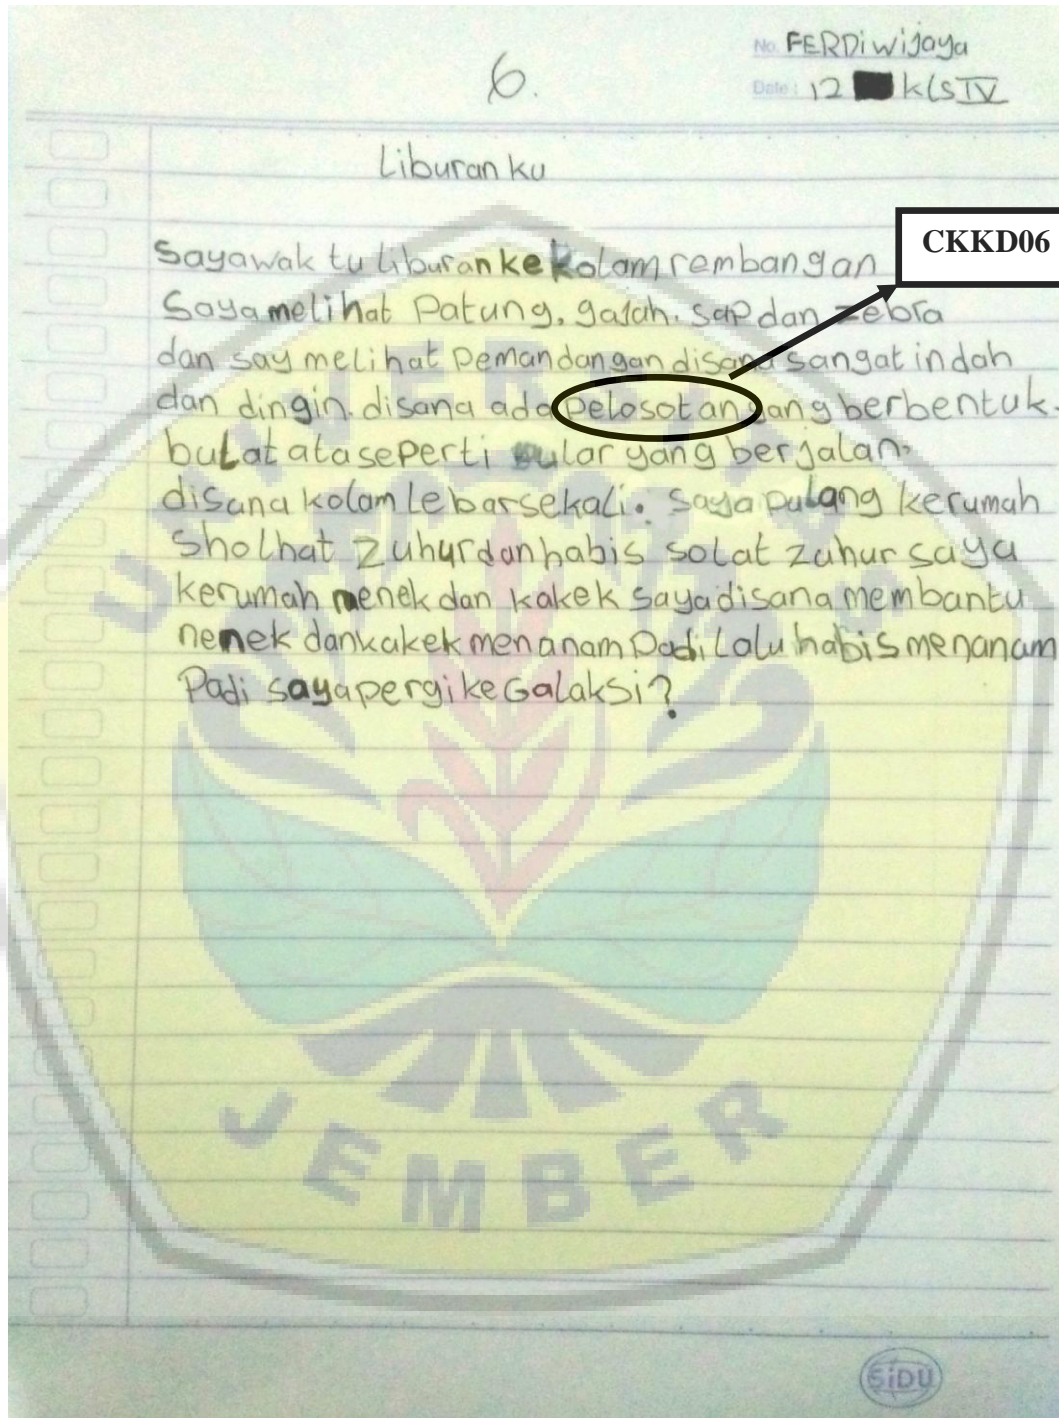 No. FERDi wijaya
6.
Date: 12 kls IV
Liburan ku
CKKD06
Sayawak tu Liburan ke kolam rembangan
Saya melihat Patung, gajah. sap dan zebra
dan say melihat Pemandangan disana sangat indah
dan dingin. disana ada pelosotan yang berbentuk.
bulat ata seperti ular yang berjalan.
disana kolam lebar sekali. saya pulang kerumah
Sholhat Zuhur dan habis solat zuhur saya
kerumah nenek dan kakek saya disana membantu
nenek dan kakek menanam Padi Lalu habis menanam
Padi saya pergi ke Galaksi?
UNIVERSITAS
JEMBER
SiDU